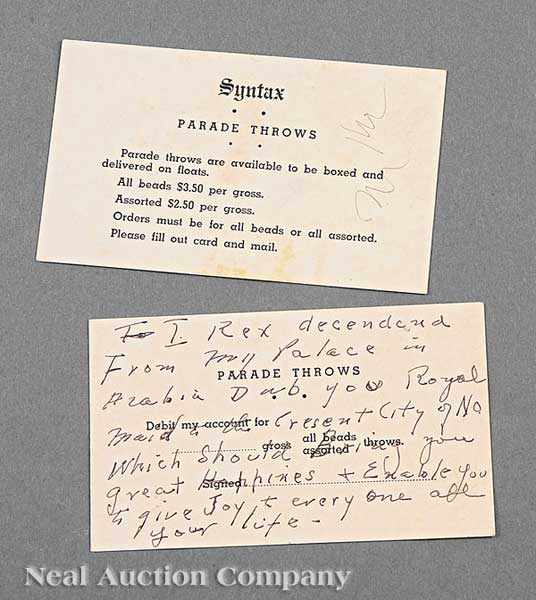 Syntax
PARADE THROWS
Parade throws are available to be boxed and
delivered on floats.
All beads $3.50 per gross.
Assorted $2.50 per gross.
Orders must be for all beads or all assorted.
Please fill out card and mail.
To I. Rex decendend
From my Palace in
PARADE THROWS
Arabia Dub you Royal
Debit my account for
Maid in the Cresent City of NO
gross all beads assorted throws.
Which Should you
Signed
great Happines + Enable you
to give Joy to every one all
your life -
Neal Auction Company